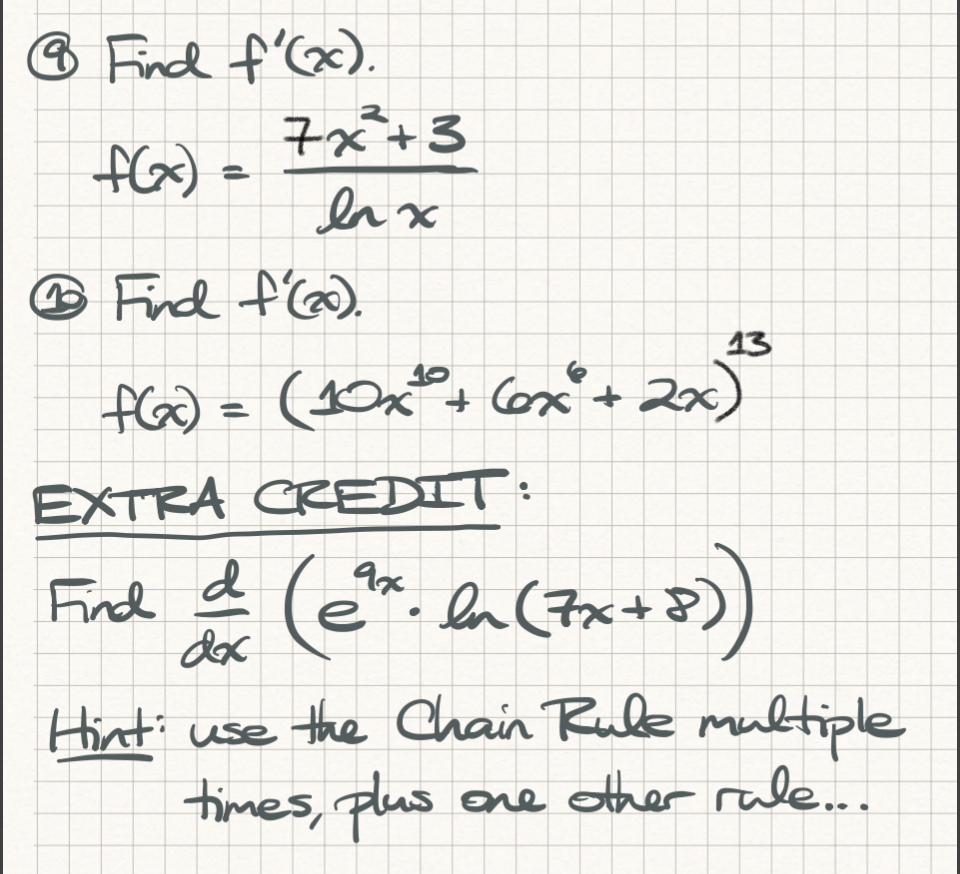 ⑨ Find f'(x).
f(x) = (7x² + 3)/(ln x)
⑩ Find f'(x).
f(x) = (10x¹⁰ + 6x⁶ + 2x)¹³
EXTRA CREDIT:
Find d/dx (e⁹ˣ · ln(7x + 8))
Hint: use the Chain Rule multiple
times, plus one other rule...